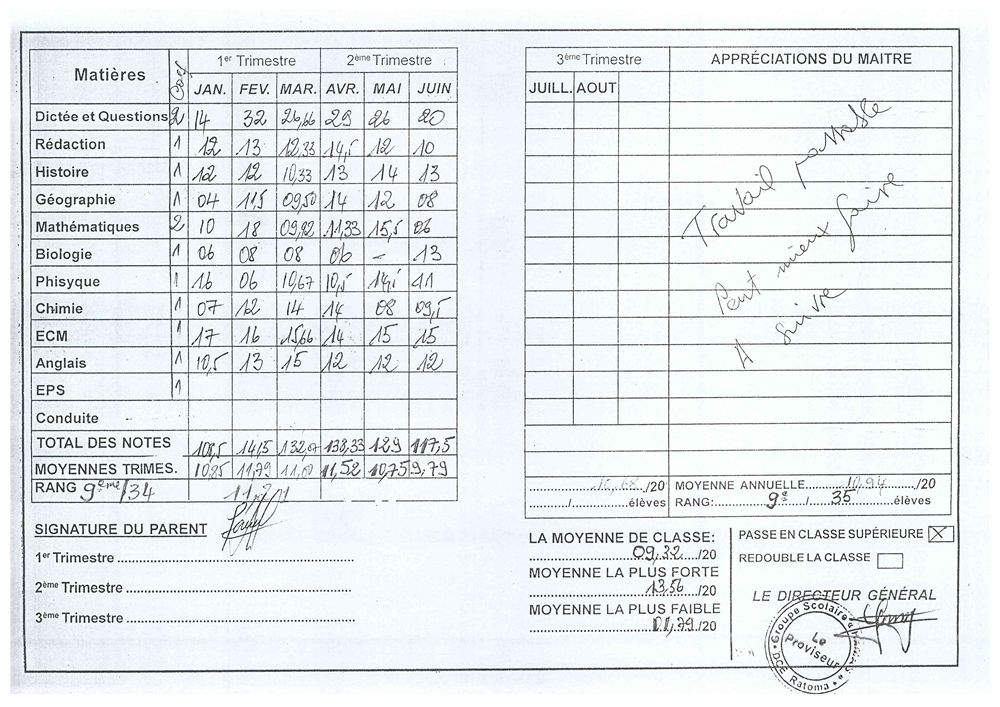 Matières Coef 1er Trimestre 2ème Trimestre
JAN. FEV. MAR. AVR. MAI JUIN
Dictée et Questions 2 14 32 26,66 29 26 20
Rédaction 1 12 13 12,33 14,5 12 10
Histoire 1 12 12 10,33 13 14 13
Géographie 1 04 11,5 09,50 14 12 08
Mathématiques 2 10 18 11,33 15,5 06
Biologie 1 06 08 08 06 - 13
Phisyque 1 16 06 10,67 10,5 14,5 11
Chimie 1 07 12 14 14 08 09,5
ECM 1 17 16 15,66 14 15 15
Anglais 1 10,5 13 15 12 12 12
EPS 1
Conduite
TOTAL DES NOTES 108,5 138,33 129 117,5
MOYENNES TRIMES. 10,85 11,79 11,52 10,75 9,79
RANG 9ème/34
SIGNATURE DU PARENT
1er Trimestre
2ème Trimestre
3ème Trimestre
3ème Trimestre APPRÉCIATIONS DU MAITRE
JUILL. AOUT
Travail passable
Peut mieux faire
A suivre
10,68 /20 MOYENNE ANNUELLE 10,94 /20
/ élèves RANG: 9e / 35 élèves
LA MOYENNE DE CLASSE:
09,32 /20
MOYENNE LA PLUS FORTE
13,56 /20
MOYENNE LA PLUS FAIBLE
01,79 /20
PASSE EN CLASSE SUPÉRIEURE X
REDOUBLE LA CLASSE
LE DIRECTEUR GÉNÉRAL
Groupe Scolaire
Le Proviseur
DCE Ratoma